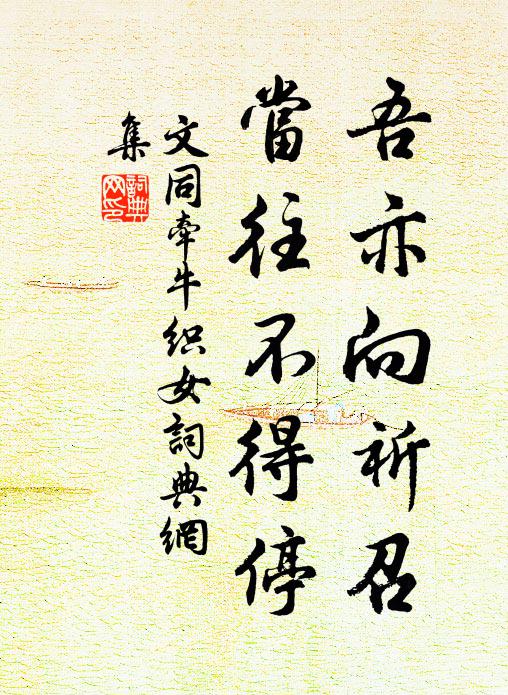 吾亦向祈召
當往不得停
文同牽牛织女詞典網
集
詞典
网印